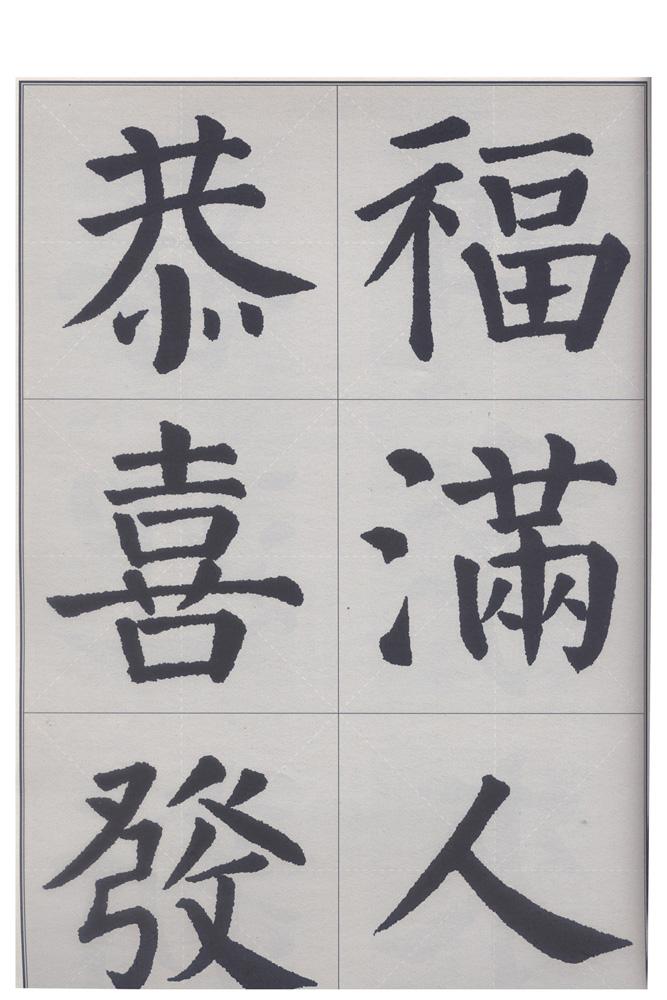 福滿人
恭喜發